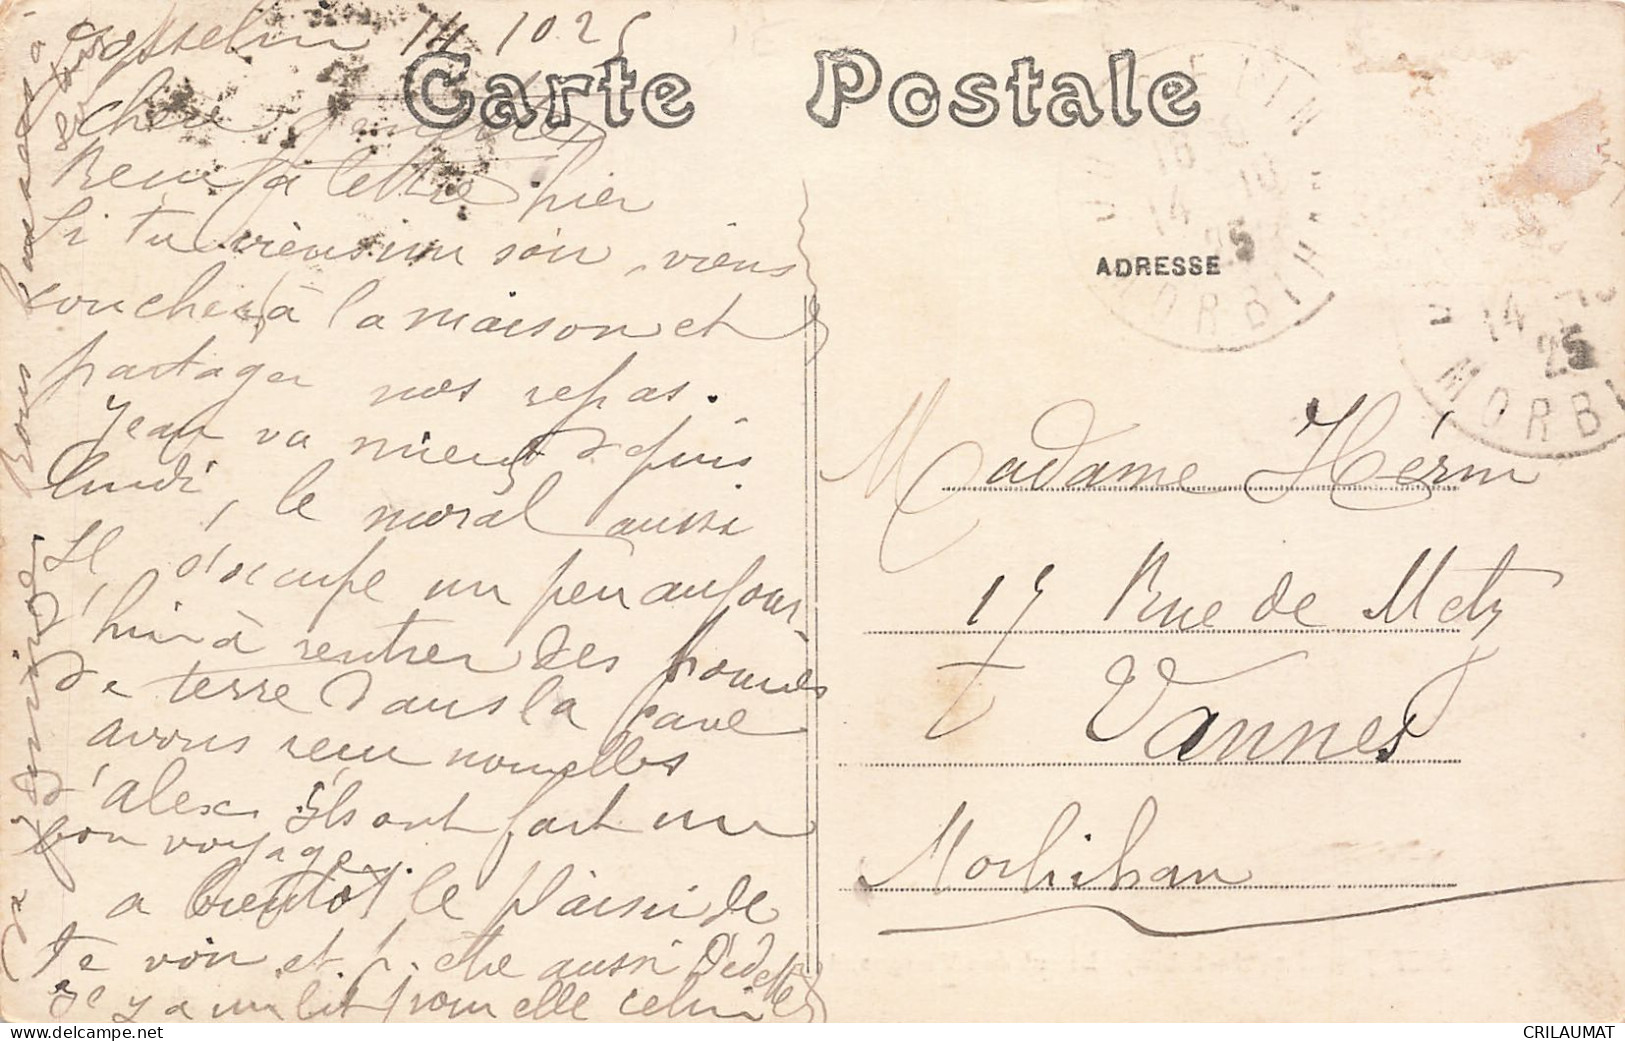 Josselin 14 10 25
Carte Postale
chère
Recu ta lettre hier
Si tu viens un soir, viens
coucher à la maison et
partager nos repas.
Jean va mieux depuis
lundi, le moral aussi
Il s'occupe un peu aujour
hui à rentrer des pommes
de terre dans la cave
avons recu nouvelles
d'alex ils ont fait un
bon voyage.
a bientôt le plaisir de
te voir et p. être aussi Dédette
il y a un lit pour elle celui
de Dominique Bons baisers à
ADRESSE
Madame Hérin
17 Rue de Metz
Vannes
Morbihan
JOSSELIN
14 -10
25
MORBIHAN
14 -10
25
MORBI
CRILAUMAT
www.delcampe.net